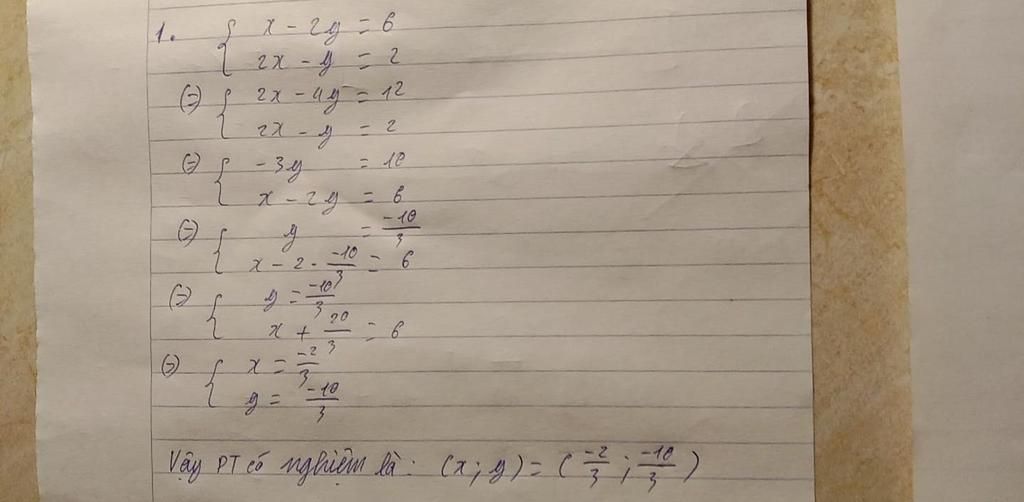 1. { x - 2y = 6
2x - y = 2
(=) { 2x - 4y = 12
2x - y = 2
(=) { -3y = 10
x - 2y = 6
(=) { y = -10/3
x - 2 . -10/3 = 6
(=) { y = -10/3
x + 20/3 = 6
(=) { x = -2/3
y = -10/3
Vậy PT có nghiệm là : (x ; y) = ( -2/3 ; -10/3 )